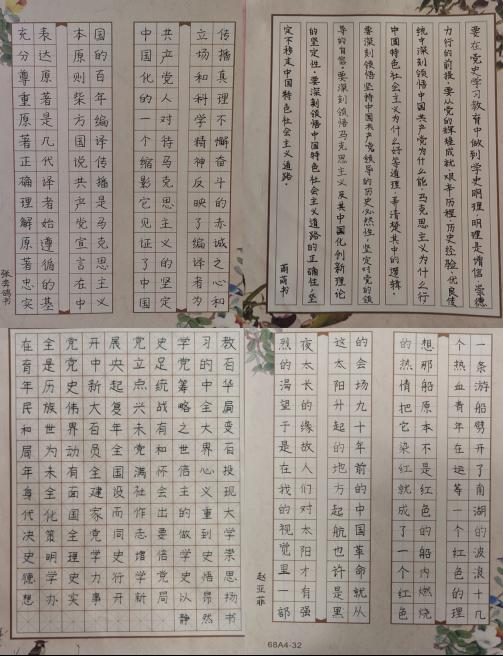 传播真理不懈奋斗的赤诚之心和
立场和科学精神反映了编译者为
共产党人对待马克思主义的坚定
中国化的一个缩影它见证了中国
国的百年编译传播是马克思主义
本原则柴方国说共产党宣言在中
表达原著是几代译者始遵循的基
充分尊重原著正确理解原著忠实
张奕鸽书
要在党史学习教育中做到学史明理,明理是增信、崇德、
力行的前提。要从党的辉煌成就、艰辛历程、历史经验、优良传
统中深刻领悟中国共产党为什么能、马克思主义为什么行、
中国特色社会主义为什么好等道理,弄清楚其中的逻辑。
要深刻领悟坚持中国共产党领导的历史必然性,坚定对党的领
导的自信。要深刻领悟马克思主义及其中国化创新理论
的 性。要深刻领悟中国特色社会主义道路的正确性,坚
定不移走中国特色社会主义道路。
书
在全党开展党史学习教
育是党中央立足党的百
年历史新起点统筹中华
民族伟大复兴战略全局
和世界百年未有之大变
身全面建设社会主义现
代化国家而作出的重大
决策全党同志要做到学
史明理学史增信学史崇
德学史力行学党史悟思
想办实事开新局以昂扬
静书
一条游船劈开了南湖的波浪十几
个热血青年在运筹一个红色的理
想那船原本不是红色的船内燃烧
的热情把它染红就成了一个红色
的会场九十年前的中国革命就从
这太阳升起的地方起航也许是黑
夜太长的缘故人们对太阳才有强
烈的渴望于是在我的视觉里一部
赵亚菲
68A4-32